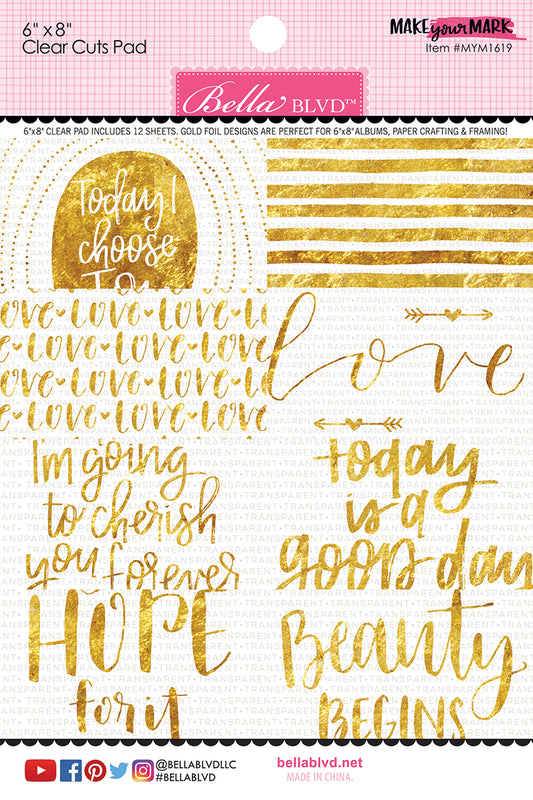 6" x 8"
Clear Cuts Pad
MAKE your MARK
Item #MYM1619
Bella BLVD™
6"x8" CLEAR PAD INCLUDES 12 SHEETS. GOLD FOIL DESIGNS ARE PERFECT FOR 6"x8" ALBUMS, PAPER CRAFTING & FRAMING!
Today I
choose
Love
love
love
love
love
love
love
love
love
love
love
love
love
love
I'm going
to cherish
you forever
today
is a
good day
HOPE
for it
Beauty
BEGINS
TRANSPARENT • TRANSPARENT • TRANSPARENT
@BELLABLVDLLC
#BELLABLVD
bellablvd.net
MADE IN CHINA.